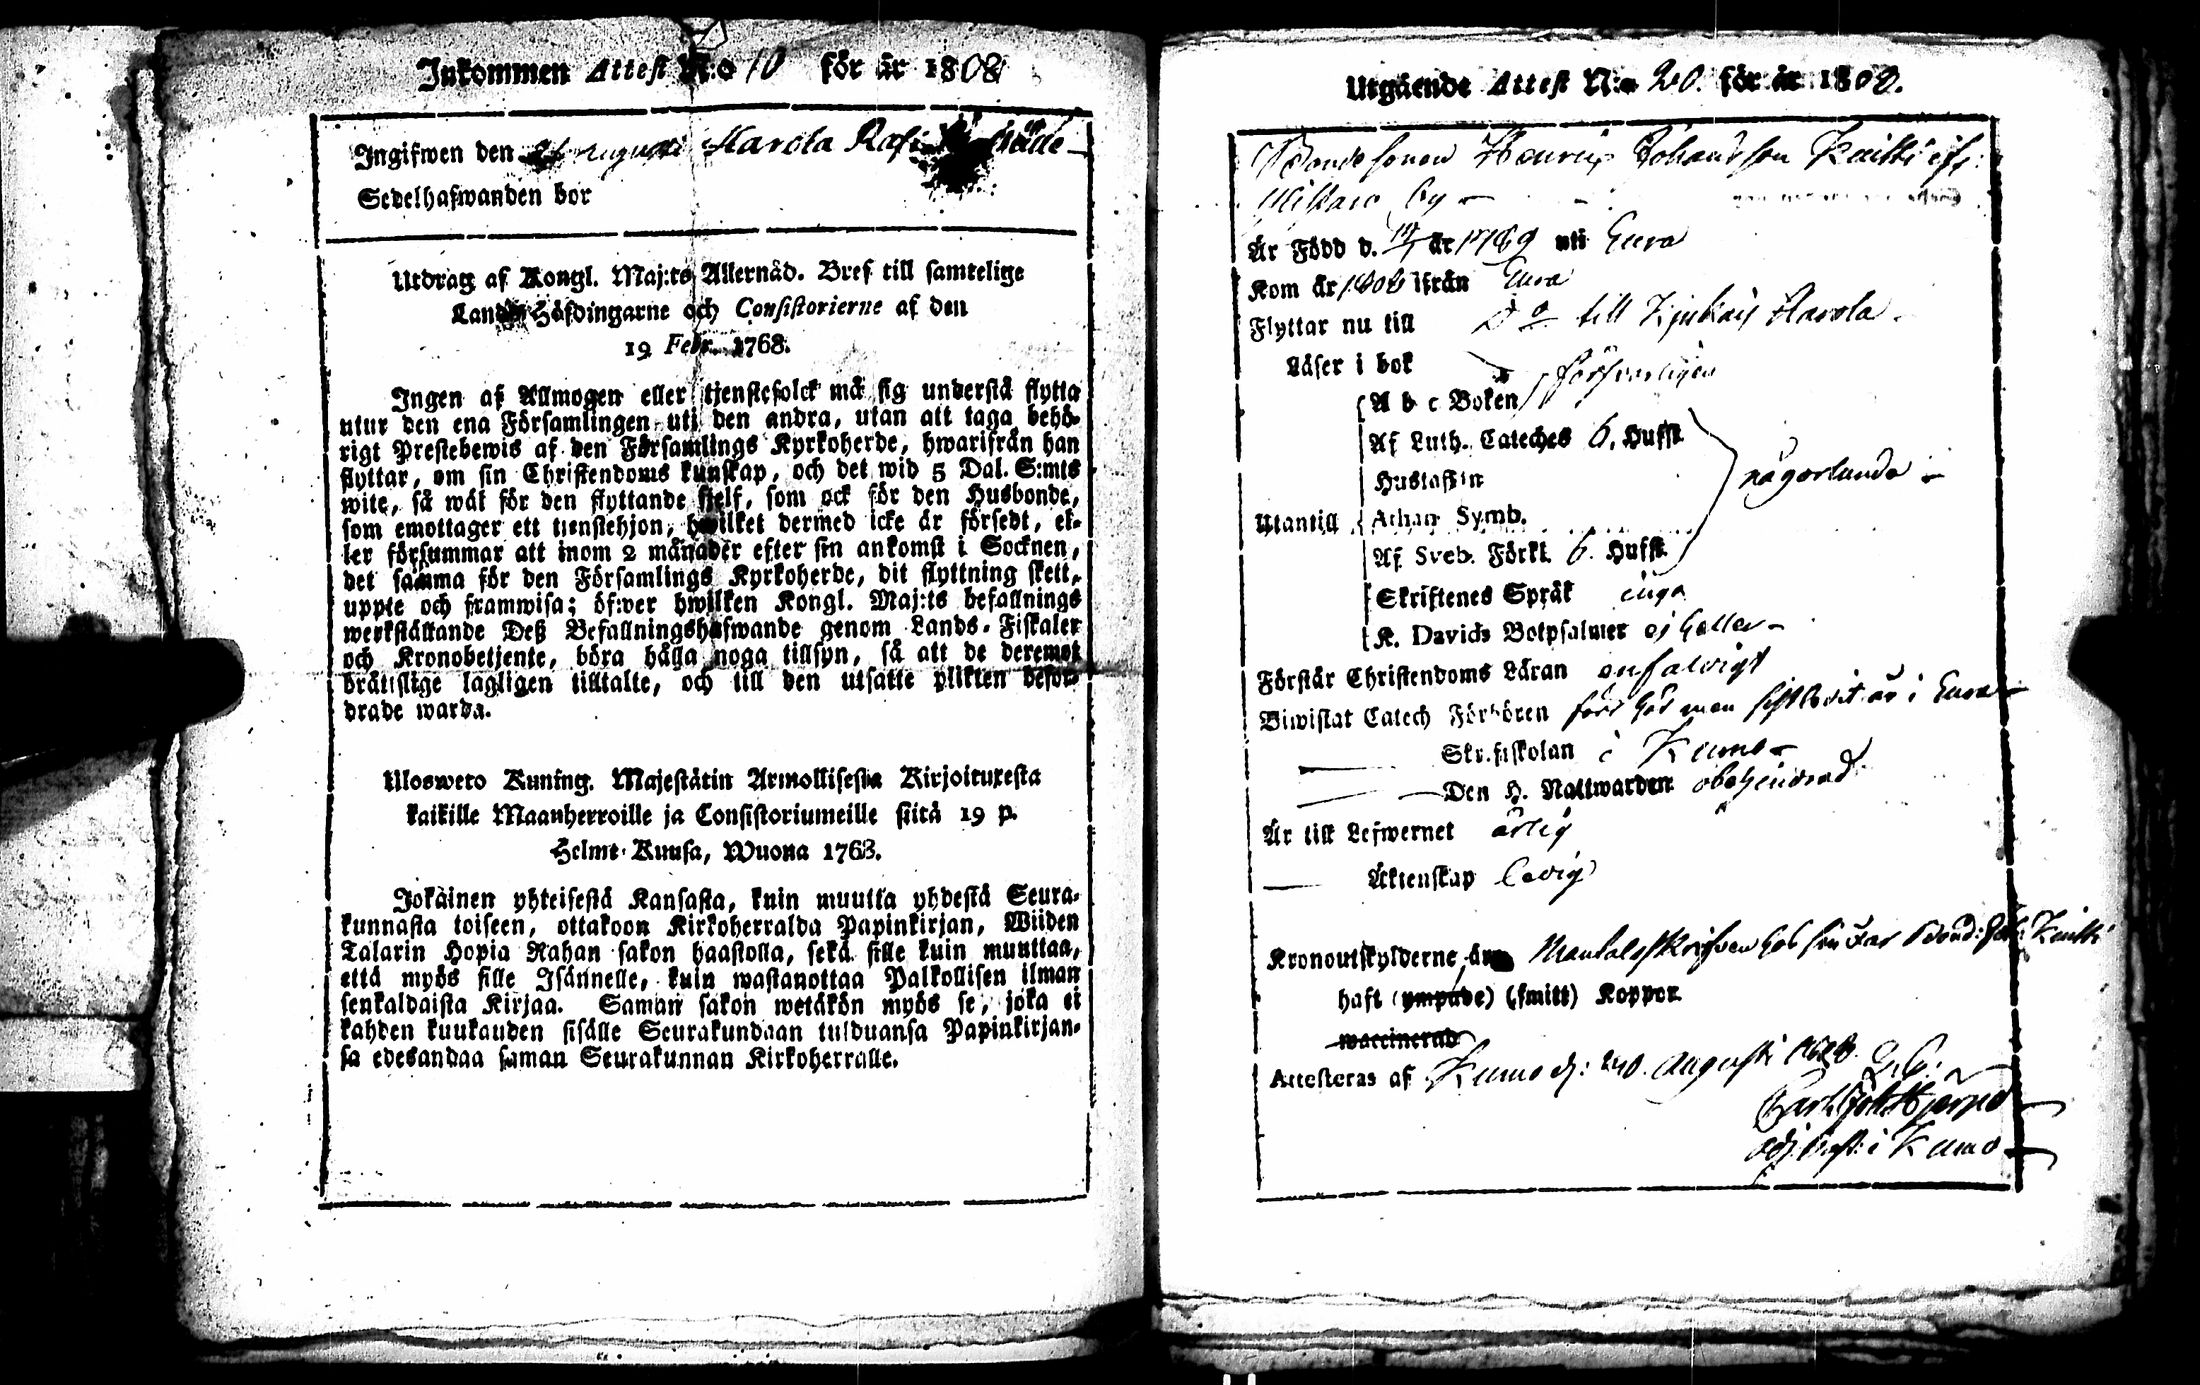 Inkommen Attest N:o 10 för år 1808
Ingifwen den 21 Augusti Harola Rasi
Sedelhafwanden bor
Utdrag af Kongl. Maj:ts Allernåd. Bref till samtelige
Lands Höfdingarne och Consistorierne af den
19 Febr. 1768.
Ingen af Allmogen eller tjenstefolck må sig understå flytta
utur den ena Församlingen uti den andra, utan att taga behö-
rigt Prestebewis af den Församlings Kyrkoherde, hwarifrån han
flyttar, om sin Christendoms kunskap, och det wid 5 Dal. S:mts
wite, så wäl för den flyttande sielf, som ock för den Husbonde,
som emottager ett tienstehjon, hwilket dermed icke är försedt, el-
ler försummar att inom 2 månader efter sin ankomst i Socknen,
det samma för den Församlings Kyrkoherde, dit flyttning skett,
uppte och framwisa; öfwer hwilken Kongl. Maj:ts befallnings
werkställande Deß Befallningshafwande genom Lands-Fiskaler
och Kronobetjente, böra hålla noga tillsyn, så att de deremot
bråttslige lagligen tilltalte, och till den utsatte plikten befor-
drade warda.
Ulosweto Kuning. Majestätin Armollisesta Kirjoituxesta
kaikille Maanherroille ja Consistoriumeille siitä 19 p.
Helme-Kuusa, Wuona 1768.
Jokainen yhteisestä Kansasta, kuin muutta yhdestä Seura-
kunnasta toiseen, ottakoon Kirkoherralda Papinkirjan, Wiiden
Talarin Hopia Rahan sakon haastolla, sekä sille kuin muuttaa,
että myös sille Isännelle, kuin wastanottaa Palkollisen ilman
senkaldaista Kirjaa. Saman sakon wetäkön myös se, joka ei
kahden kuukauden sisälle Seurakundaan tulduansa Papinkirjan-
sa edesandaa saman Seurakunnan Kirkoherralle.
Utgående Attest N:o 20. för år 1808.
Bondesonen Henric Johansson Knitti ifr:
by
Är Född d. 19/7 år 1789 uti Eura
Kom år 1806 ifrån Eura
Flyttar nu till D:o till Kjukais Harola.
Läser i bok
A b c Boken försvarligen
Af Luth. Cateches 6. Hufst.
Hustaflan någorlunda
Utantill Athan Symb.
Af Sveb. Förkl. 6. Hufst.
Skriftenes Språk inga
K. Davids Botpsalmer ej heller
Förstår Christendoms Läran enfaldigt
Biwistat Catech Förhören förr här men sistledit år i Eura
Skriftskolan i Kumo
Den H. Nattwarden obehindrad
Är till Lefwernet ärlig
Äktenskap ledig
Kronoutskylderne är Mantalsskrifven hos sin Far Bond: Joh: Knitti
haft (ympade) (smitt) Koppor
waccinerad
Attesteras af Kumo d: 20. Augusti 1808.
Carl Joh Hjerpe
adj: Past: i Kumo